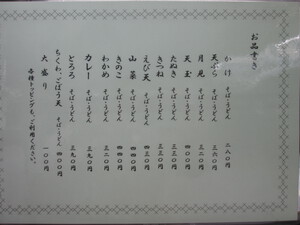 お品書き
かけ そば・うどん 二八〇円
天ぷら そば・うどん 三六〇円
月見 そば・うどん 三二〇円
天玉 そば・うどん 四〇〇円
たぬき そば・うどん 三三〇円
きつね そば・うどん 三三〇円
えび天 そば・うどん 四三〇円
山菜 そば・うどん 四四〇円
きのこ そば・うどん 四四〇円
わかめ そば・うどん 三二〇円
カレー そば・うどん 三九〇円
とろろ そば・うどん 三九〇円
ちくわ、ごぼう天 そば・うどん 四〇〇円
大盛り 一〇〇円
各種トッピングも、ご利用ください。